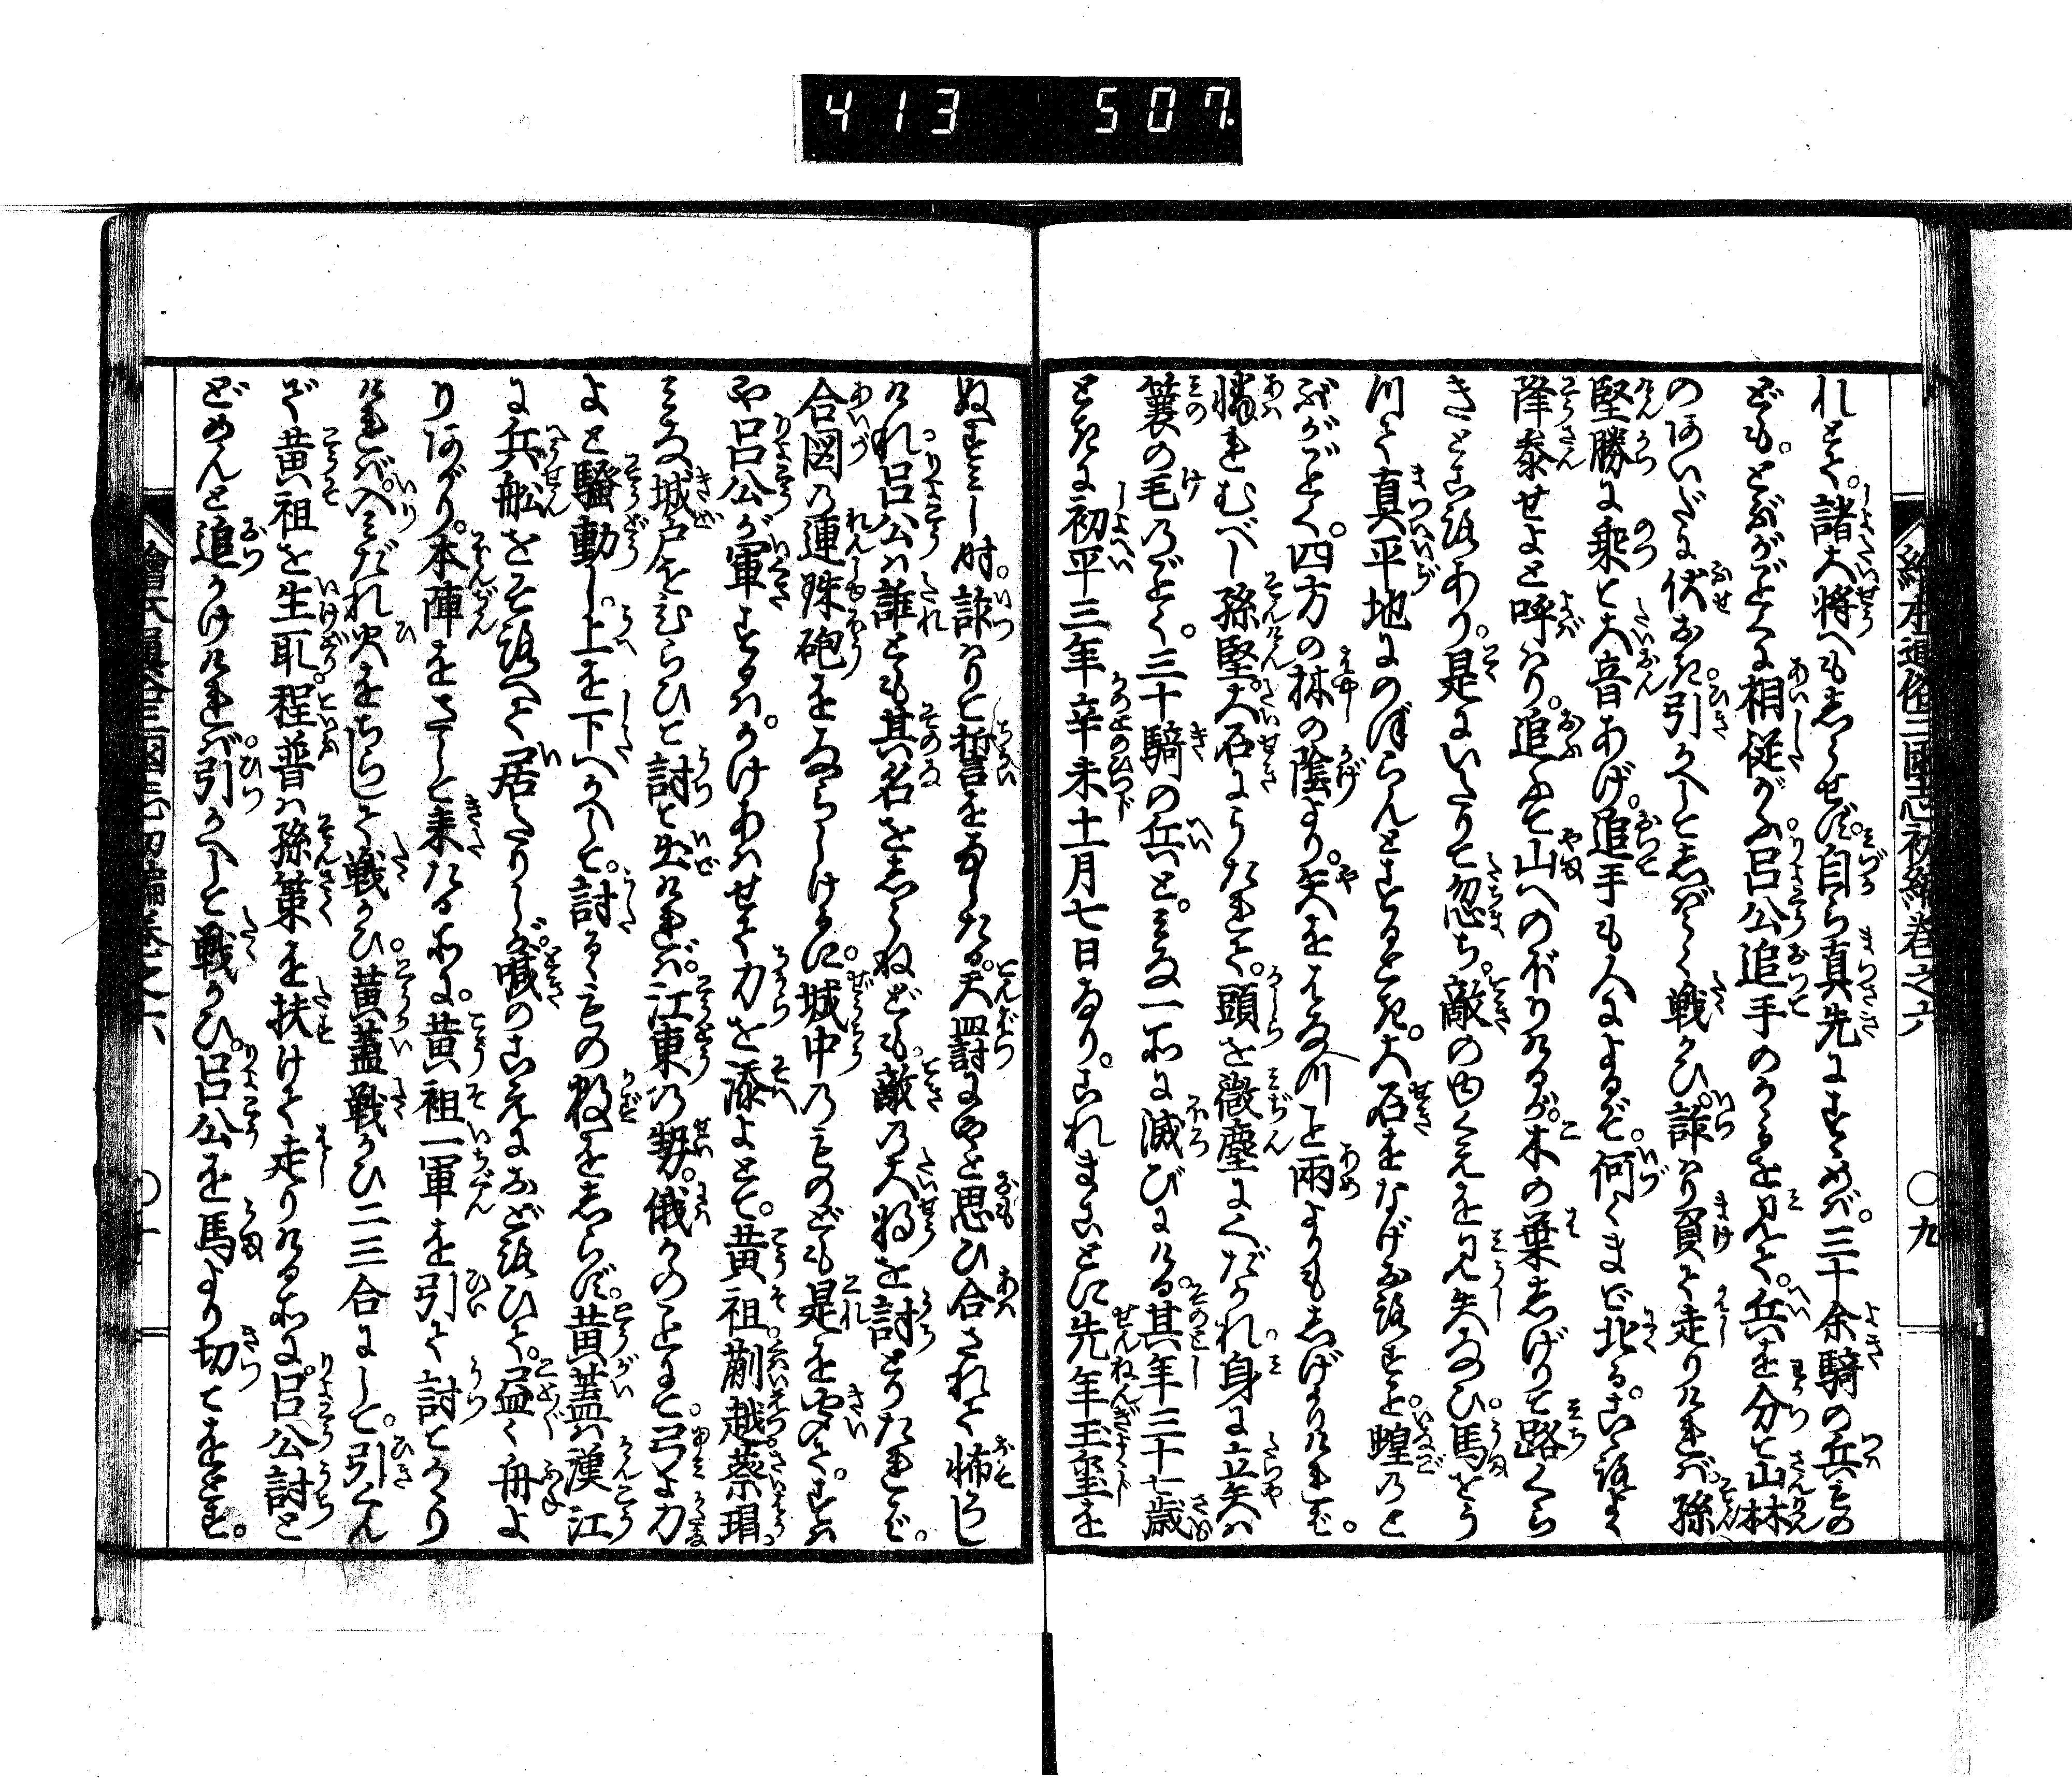 413 507
繪本通俗三國志初編卷之六 〇九
れとて。諸大将へもしらせず。自ら真先にすゝめば。三十余騎の兵もの
ども。とぶがごとくに相従がふ。呂公追手のかゝるを見て。兵を分て山林
のあいだに伏おき。引かへしてしばらく戦かひ。詐り負て走りければ。孫
堅勝に乗て大音あげ。追手も人によるぞ。何くまで北る。こゝろよく
降参せよと呼はり。追ふて山へのぼりけるが。木の葉しげりて路くら
きところあり。是にいたりて忽ち。敵の内くえを見失なひ。馬をう
つて真平地にのぼらんとするとき。大石をなげおろすこと。蝗のと
ぶがごとく。四方の林の陰より。矢をはなつこと雨よりもしげかりければ。
憐れむべし孫堅。大石にうたれて。頭を微塵にくだかれ。身に立矢は
簑の毛のごとく。三十騎の兵と。みな一所に滅びにける。其年三十七歳
ときに初平三年辛未十一月七日なり。これまことに先年玉璽を
ぬすみし時。詐りて誓をなしたる。天罰にやと思ひ合されて怖ろし
けれ。呂公は誰とも其名をしらねども。敵の大将を討とりたれば。
合図の連珠砲をならしけるに。城中のものども是を聞て。すは
や呂公が軍するは。かけあはせて力を添よとて。黄祖。蒯越。蔡瑁
みな城戸をひらひて討て出ければ。江東の勢。俄かのことにて。弓よ刀
よと騒動し。上を下へかへして。討るゝものの数をしらず。黄蓋は漢江
に兵舩をそろへて居たりしが。喊のこゑにおどろひて。盡く舟よ
りあがり。本陣をさして来たる所に。黄祖一軍を引て討てかゝり
ければ。入みだれ火をちらして戦かひ。黄蓋戦かひ二三合にして。引くん
で黄祖を生取。程普は孫策を扶けて走りける所に。呂公討と
どめんと追かけければ。引かへして戦かひ。呂公を馬より切ておとす。